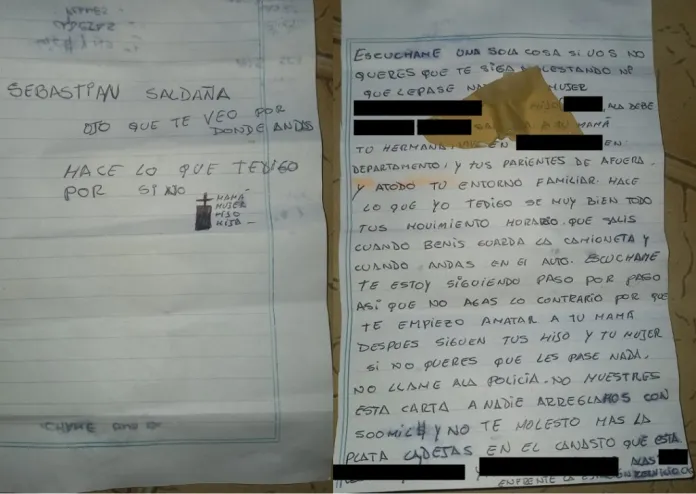 SEBASTIAN SALDAÑA
OJO QUE TE VEO POR
DONDE ANDAS
HACE LO QUE TEDIGO
POR SI NO
MAMÁ
MUJER
HIJO
HIJA
ESCUCHAME UNA SOLA COSA SI VOS NO
QUERES QUE TE SIGA MOLESTANDO NI
QUE LEPASE MUJER
HIJO ALA BEBE
A TU MAMÁ
TU HERMANA EN EN
DEPARTAMENTO, Y TUS PARIENTES DE AFUERA.
Y ATODO TU ENTORNO FAMILIAR. HACE
LO QUE YO TEDIGO SE MUY BIEN TODO
TUS MOVIMIENTO HORARIO. QUE SALIS
CUANDO BENIS GUARDA LA CAMIONETA Y
CUANDO ANDAS EN EL AUTO. ESCUCHAME
TE ESTOY SIGUIENDO PASO POR PASO
ASÍ QUE NO AGAS LO CONTRARIO POR QUE
TE EMPIEZO AMATAR A TU MAMÁ
DESPUES SIGUEN TUS HIJO Y TU MUJER
SI NO QUERES QUE LES PASE NADA.
NO LLAME ALA POLICIA. NO MUESTRES
ESTA CARTA A NADIE ARREGLAMOS CON
500MIL$ Y NO TE MOLESTO MAS LA
PLATA LADEJAS EN EL CANASTO QUE ESTA
Y ALAS
ENFRENTE LA